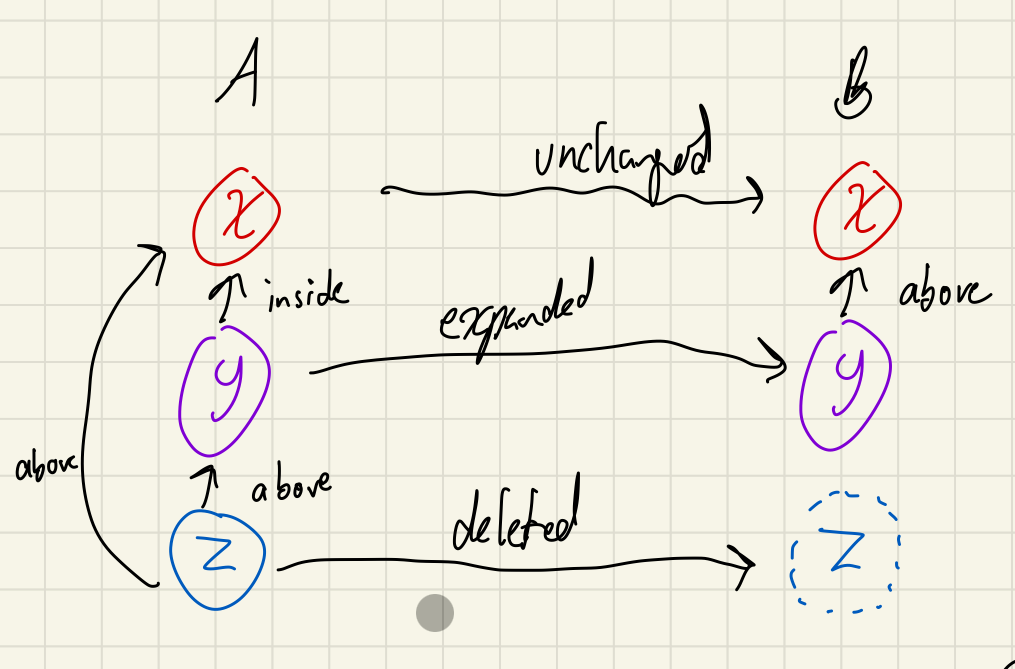 A B
unchanged
x x
inside above
expanded
y y
above above
deleted
z z